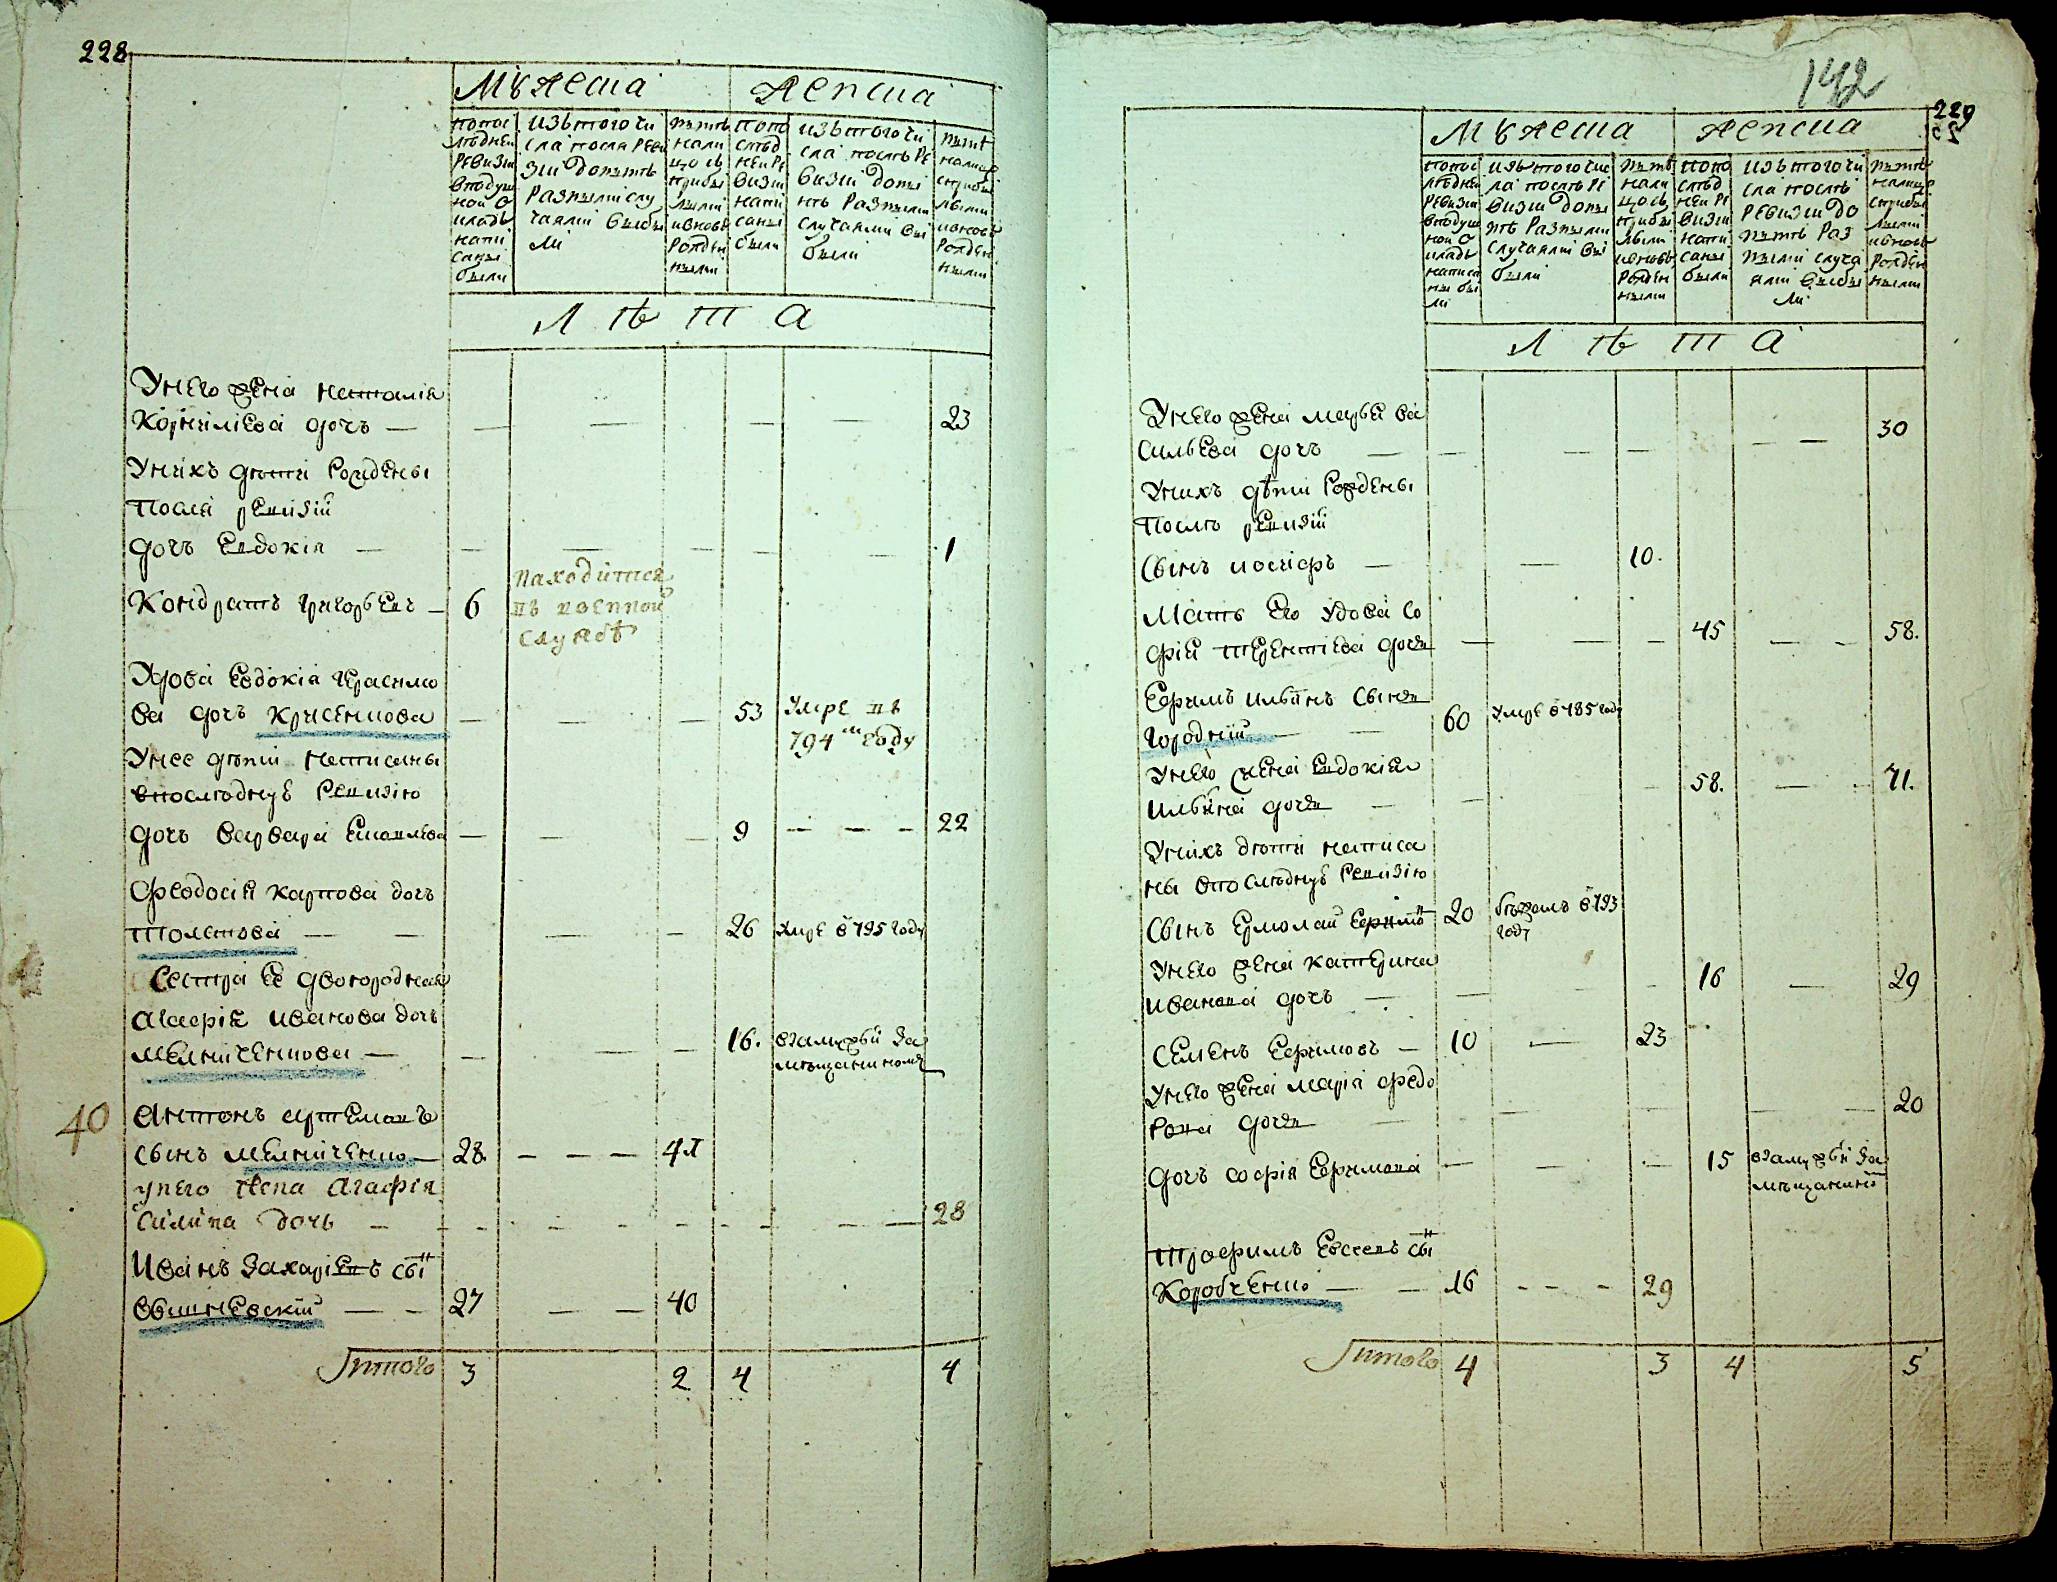 228
Мужеска Женска
по пос
лѣдней
ревизіи
в подуш
ной о
кладъ
напи
саны
были
изъ того чи
сла посля реви
зіи до нынѣ
разными слу
чаями выбы
ли
нынѣ
нали
цо съ
прибы
лыми
и вновь
рожден
ными
по по
слѣд
ней ре
визіи
напи
саны
были
изъ того чи
сла послѣ ре
визіи до ны
нѣ разными
случаями вы
были
нынѣ
налицо
с прибы
лыми
и вновь
рожден
ными
Л ѣ т а
У него жена наталія
Корнилиева дочь — 23
У нихъ дѣти рождены
посля ревизіи
дочь Евдокія — 1
Кондратъ григорьевъ — 6 находится
въ военной
службѣ
Вдова Евдокіа Герасимо
ва дочь Крисенкова — 53 умре въ
794м году
У нее дѣти написаны
в последнуѣ ревизію
дочь варвара Яковлева — 9 — 22
Феодосія карпова дочь
толстова — 26 умре в 795 году
Сестра еѣ двоюродная
агафіѣ иванова дочь
мелниченкова — 16. в замужьи за
мѣщаниномъ
40 Антонъ артемовъ
сынъ мелниченко — 28. — 41
у него жена агафія
силина дочь — 28
Иванъ захаріевъ сынъ
Вышневскій — 27 — 40
Итого 3 2 4 4
142
229
Мужеска Женска
по пос
лѣдней
ревизіи
в подуш
ной о
кладъ
написа
ны бы
ли
изъ того чис
ла послѣ ре
визіи до ны
нѣ разными
случаями вы
были
нынѣ
нали
цо съ
прибы
лыми
и вновь
рожден
ными
по по
слѣд
ней ре
визіи
напи
саны
были
изъ того чи
сла послѣ
ревизіи до
нынѣ раз
ными случа
ями выбы
ли
нынѣ
налицо
с прибы
лыми
и вновь
рожден
ными
Л ѣ т а
У него жена марьѣ ва
сильева дочь — 30
У нихъ дѣти рождены
послѣ ревизіи
Сынъ иосифъ — 10.
Мать его удова со
фіѣ терентіева дочь — 45 — 58.
Ефимъ ильинъ сынъ
Городній — 60 умре в 785 году
У него жена Евдокія
ильина дочь — 58. — 71.
У нихъ дѣти написа
ны в послѣднуѣ ревизію
Сынъ Ермолай Ефимовъ 20 бѣжалъ в 793
году
У него жена катерина
иванова дочь — 16 — 29
Семенъ Ефимовъ — 10 — 23
У него жена марія федо
рова дочь — 20
Дочь софія Ефимова — 15 в замужьи за
мѣщанином
Трофимъ Евсеевъ сынъ
Коробченко — 16 — 29
Итого 4 3 4 5